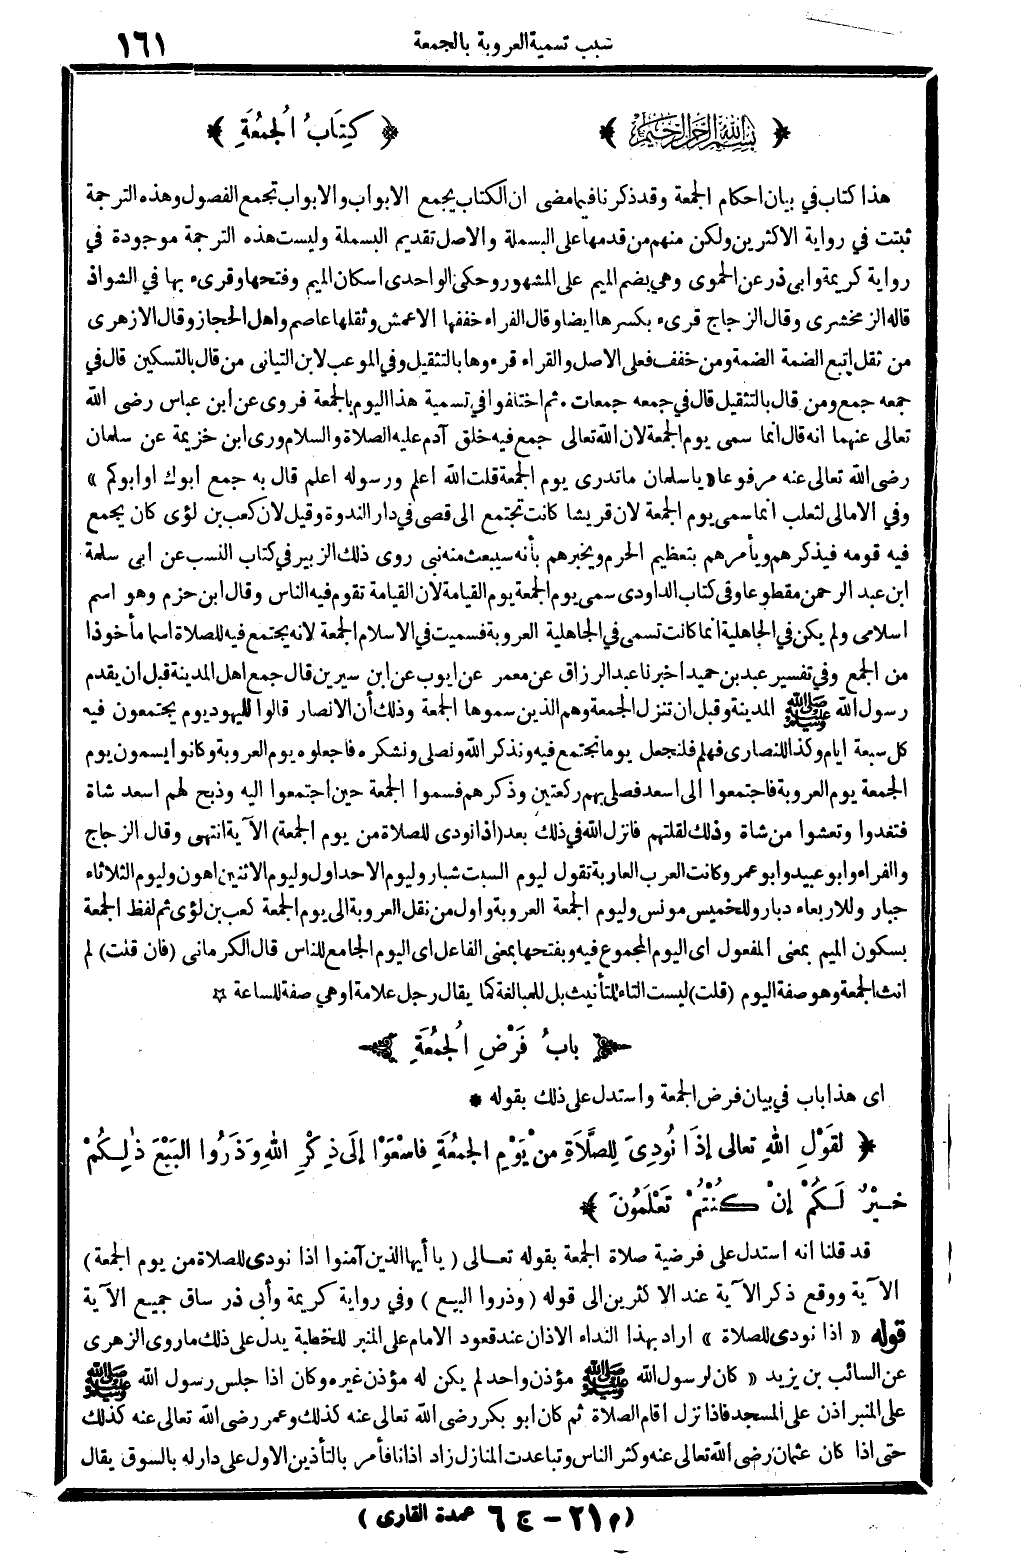 سبب تسمية العروبة بالجمعة ١٦١
﴿ بسم الله الرحمن الرحيم ﴾ ﴿ كِتَابُ الْجُمُعَةِ ﴾
هذا كتاب في بيان احكام الجمعة وقد ذكرنا فيما مضى ان الكتاب يجمع الابواب والابواب تجمع الفصول وهذه الترجمة
ثبتت في رواية الاكثرين ولكن منهم من قدمها على البسملة والاصل تقديم البسملة وليست هذه الترجمة موجودة في
رواية كريمة وابى ذر عن الحموى وهي بضم الميم على المشهور وحكى الواحدى اسكان الميم وفتحها وقرىء بها في الشواذ
قاله الزمخشرى وقال الزجاج قرىء بكسرها ايضا وقال الفراء خففها الاعمش وثقلها عاصم واهل الحجاز وقال الازهرى
من ثقل اتبع الضمة الضمة ومن خفف فعلى الاصل والقراء قرءوها بالتثقيل وفي الموعب لابن التيانى من قال بالتسكين قال في
جمعه جمع ومن قال بالتثقيل قال في جمعه جمعات . ثم اختلفوا في تسمية هذا اليوم بالجمعة فروى عن ابن عباس رضى الله
تعالى عنهما انه قال انما سمى يوم الجمعة لان الله تعالى جمع فيه خلق آدم عليه الصلاة والسلام ورى ابن خزيمة عن سلمان
رضى الله تعالى عنه مرفوعا « يا سلمان ما تدرى يوم الجمعة قلت الله اعلم ورسوله اعلم قال به جمع ابوك او ابوكم »
وفي الامالى لثعلب انما سمى يوم الجمعة لان قريشا كانت تجتمع الى قصى في دار الندوة وقيل لان كعب بن لؤى كان يجمع
فيه قومه فيذكرهم ويأمرهم بتعظيم الحرم ويخبرهم بأنه سيبعث منه نبى روى ذلك الزبير في كتاب النسب عن ابى سلمة
ابن عبد الرحمن مقطوعا وفى كتاب الداودى سمى يوم الجمعة يوم القيامة لان القيامة تقوم فيه الناس وقال ابن حزم وهو اسم
اسلامى ولم يكن في الجاهلية انما كانت تسمى في الجاهلية العروبة فسميت في الاسلام الجمعة لانه يجتمع فيه للصلاة اسما مأخوذا
من الجمع وفي تفسير عبد بن حميد اخبرنا عبد الرزاق عن معمر عن ايوب عن ابن سيرين قال جمع اهل المدينة قبل ان يقدم
رسول الله ﷺ المدينة وقبل ان تنزل الجمعة وهم الذين سموها الجمعة وذلك أن الانصار قالوا لليهود يوم يجتمعون فيه
كل سبعة ايام وكذا للنصارى فهلم فلنجعل يوما نجتمع فيه ونذكر الله ونصلى ونشكره فاجعلوه يوم العروبة وكانوا يسمون يوم
الجمعة يوم العروبة فاجتمعوا الى اسعد فصلى بهم ركعتين وذكرهم فسموا الجمعة حين اجتمعوا اليه وذبح لهم اسعد شاة
فتغدوا وتعشوا من شاة وذلك لقلتهم فانزل الله في ذلك بعد (اذا نودى للصلاة من يوم الجمعة) الآية انتهى وقال الزجاج
والفراء وابو عبيد وابو عمر وكانت العرب العاربة تقول ليوم السبت شبار وليوم الاحد اول وليوم الاثنين اهون وليوم الثلاثاء
جبار وللاربعاء دبار وللخميس مونس وليوم الجمعة العروبة واول من نقل العروبة الى يوم الجمعة كعب بن لؤى ثم لفظ الجمعة
بسكون الميم بمعنى المفعول اى اليوم المجموع فيه وبفتحها بمعنى الفاعل اى اليوم الجامع للناس قال الكرمانى (فان قلت) لم
انث الجمعة وهو صفة اليوم (قلت) ليست التاء للتأنيث بل للمبالغة كما يقال رجل علامة او هي صفة للساعة ☆
بابُ فَرْضِ الْجُمُعَةِ
اى هذا باب في بيان فرض الجمعة واستدل على ذلك بقوله *
﴿ لقَوْلِ اللهِ تعالى إذَا نُودِىَ لِلصَّلَاةِ مِنْ يَوْمِ الجمُعَةِ فاسْعَوْا إلَى ذِكْرِ اللهِ وَذَرُوا البَيْعَ ذٰلِكُمْ
خَيْرٌ لَكُمْ إنْ كُنْتُمْ تَعْلَمُونَ ﴾
قد قلنا انه استدل على فرضية صلاة الجمعة بقوله تعالى ( يا أيها الذين آمنوا اذا نودى للصلاة من يوم الجمعة )
الآية ووقع ذكر الآية عند الاكثرين الى قوله ( وذروا البيع ) وفي رواية كريمة وأبى ذر ساق جميع الآية
قوله « اذا نودى للصلاة » اراد بهذا النداء الاذان عند قعود الامام على المنبر للخطبة يدل على ذلك ما روى الزهرى
عن السائب بن يزيد « كان لرسول الله ﷺ مؤذن واحد لم يكن له مؤذن غيره وكان اذا جلس رسول الله ﷺ
على المنبر اذن على المسجد فاذا نزل اقام الصلاة ثم كان ابو بكر رضى الله تعالى عنه كذلك وعمر رضى الله تعالى عنه كذلك
حتى اذا كان عثمان رضى الله تعالى عنه وكثر الناس وتباعدت المنازل زاد اذانا فأمر بالتأذين الاول على دار له بالسوق يقال
(م ٢١ – ج ٦ عمدة القارى )